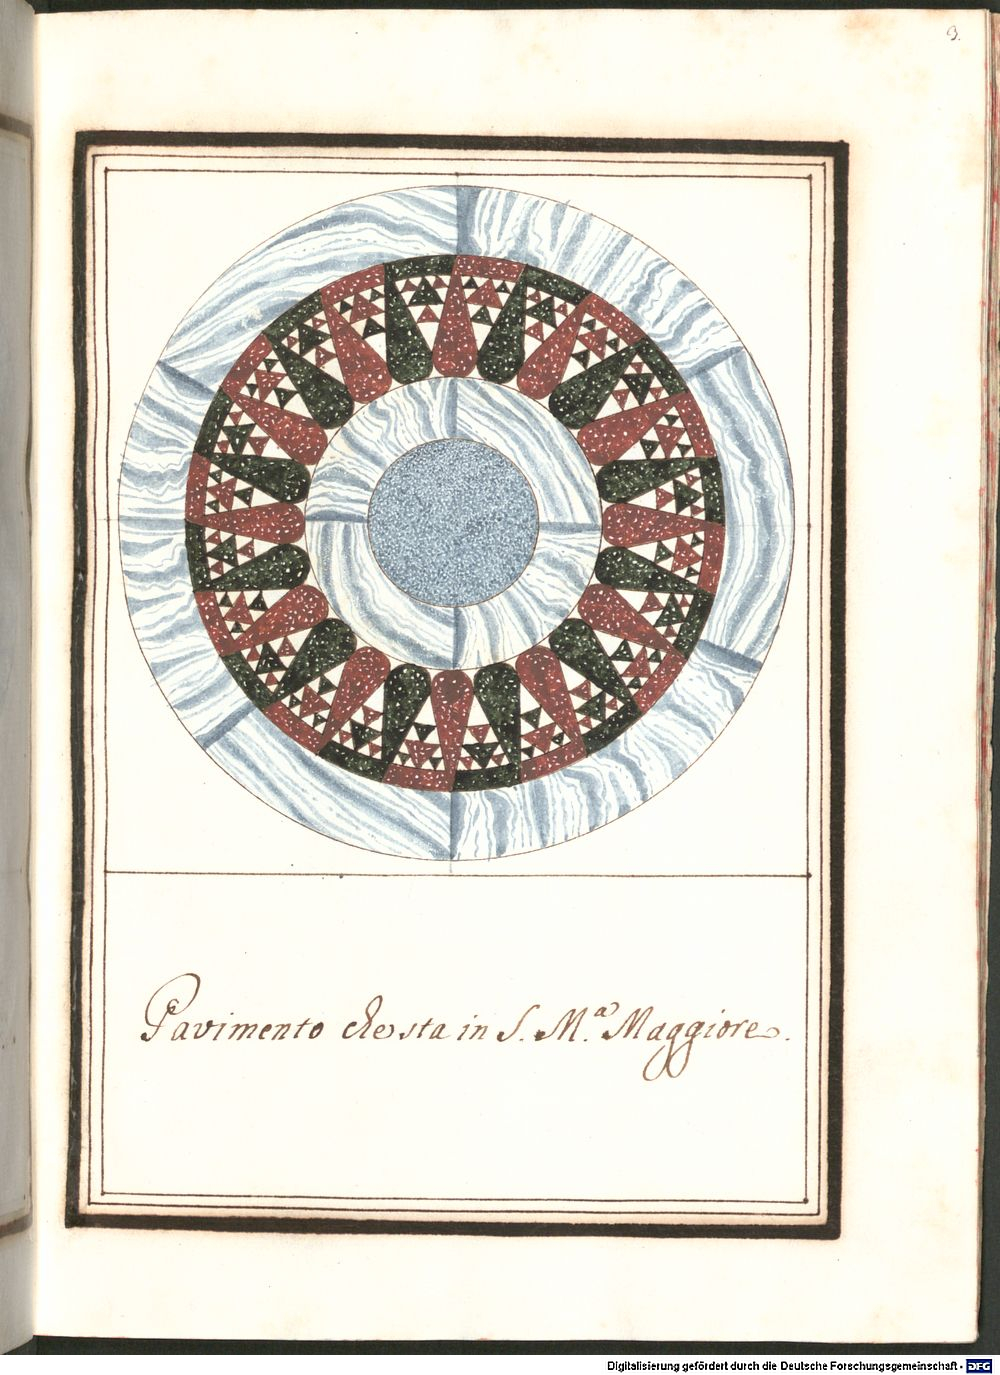 9.
Pavimento che sta in S. M.ª Maggiore.
Digitalisierung gefördert durch die Deutsche Forschungsgemeinschaft - DFG